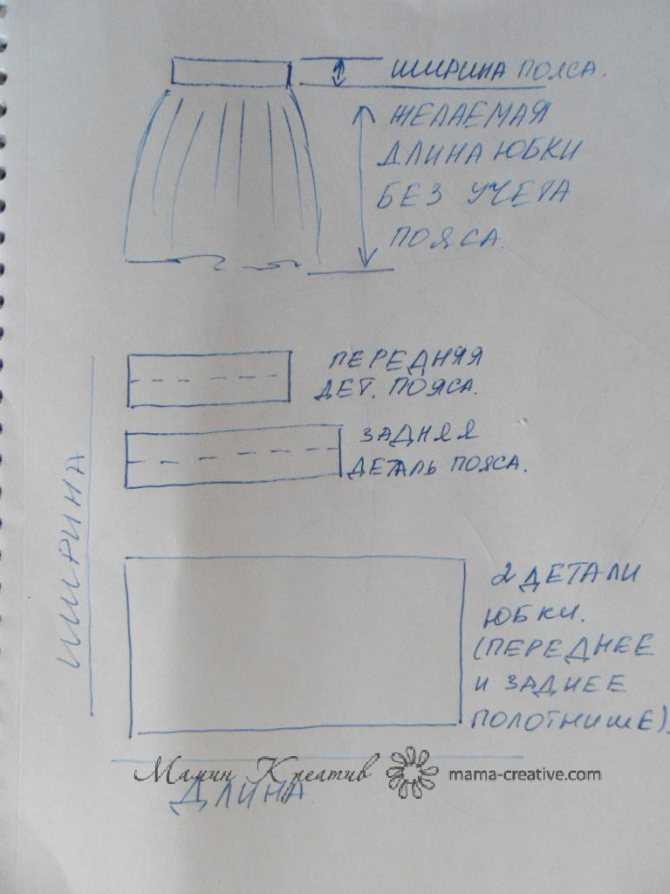 ШИРИНА ПОЯСА.
ЖЕЛАЕМАЯ
ДЛИНА ЮБКИ
БЕЗ УЧЕТА
ПОЯСА.
ПЕРЕДНЯЯ
ДЕТ. ПОЯСА.
ЗАДНЯЯ
ДЕТАЛЬ ПОЯСА.
ШИРИНА
2 ДЕТАЛИ
ЮБКИ.
(ПЕРЕДНЕЕ
И ЗАДНЕЕ
ПОЛОТНИШЕ).
Мамин Креатив mama-creative.com
ДЛИНА